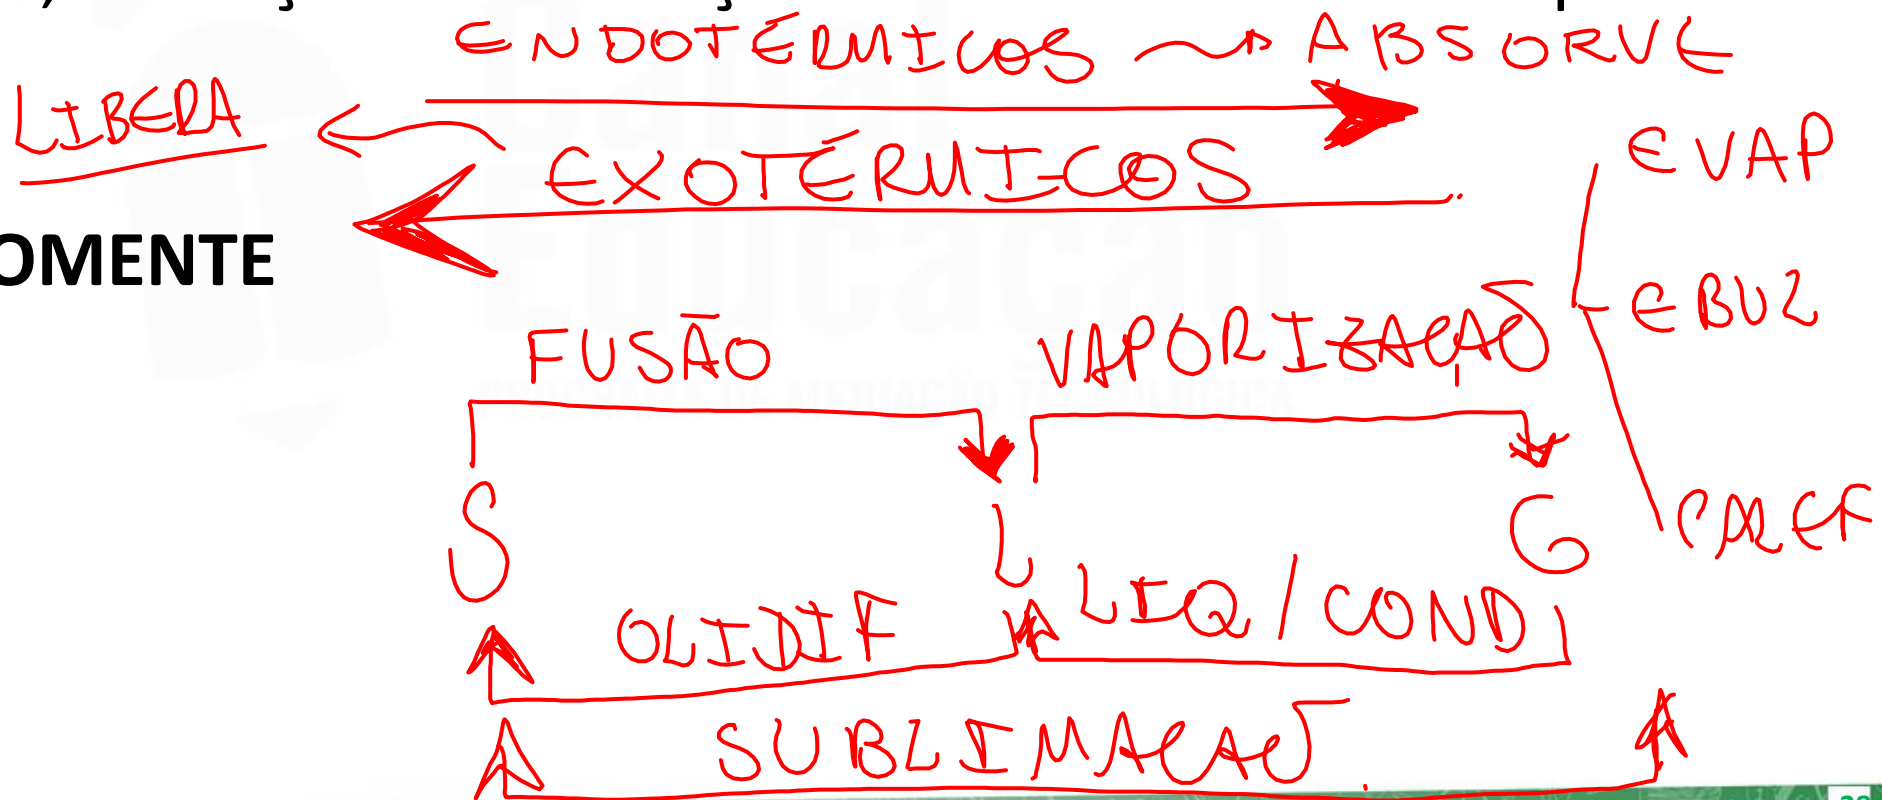 ENDOTÉRMICOS → ABSORVE
LIBERA
EXOTÉRMICOS
EVAP
OMENTE
EBUL
FUSÃO
VAPORIZAÇÃO
CALEF
S
L
G
OLIDIF
LIQ/COND
SUBLIMAÇÃO